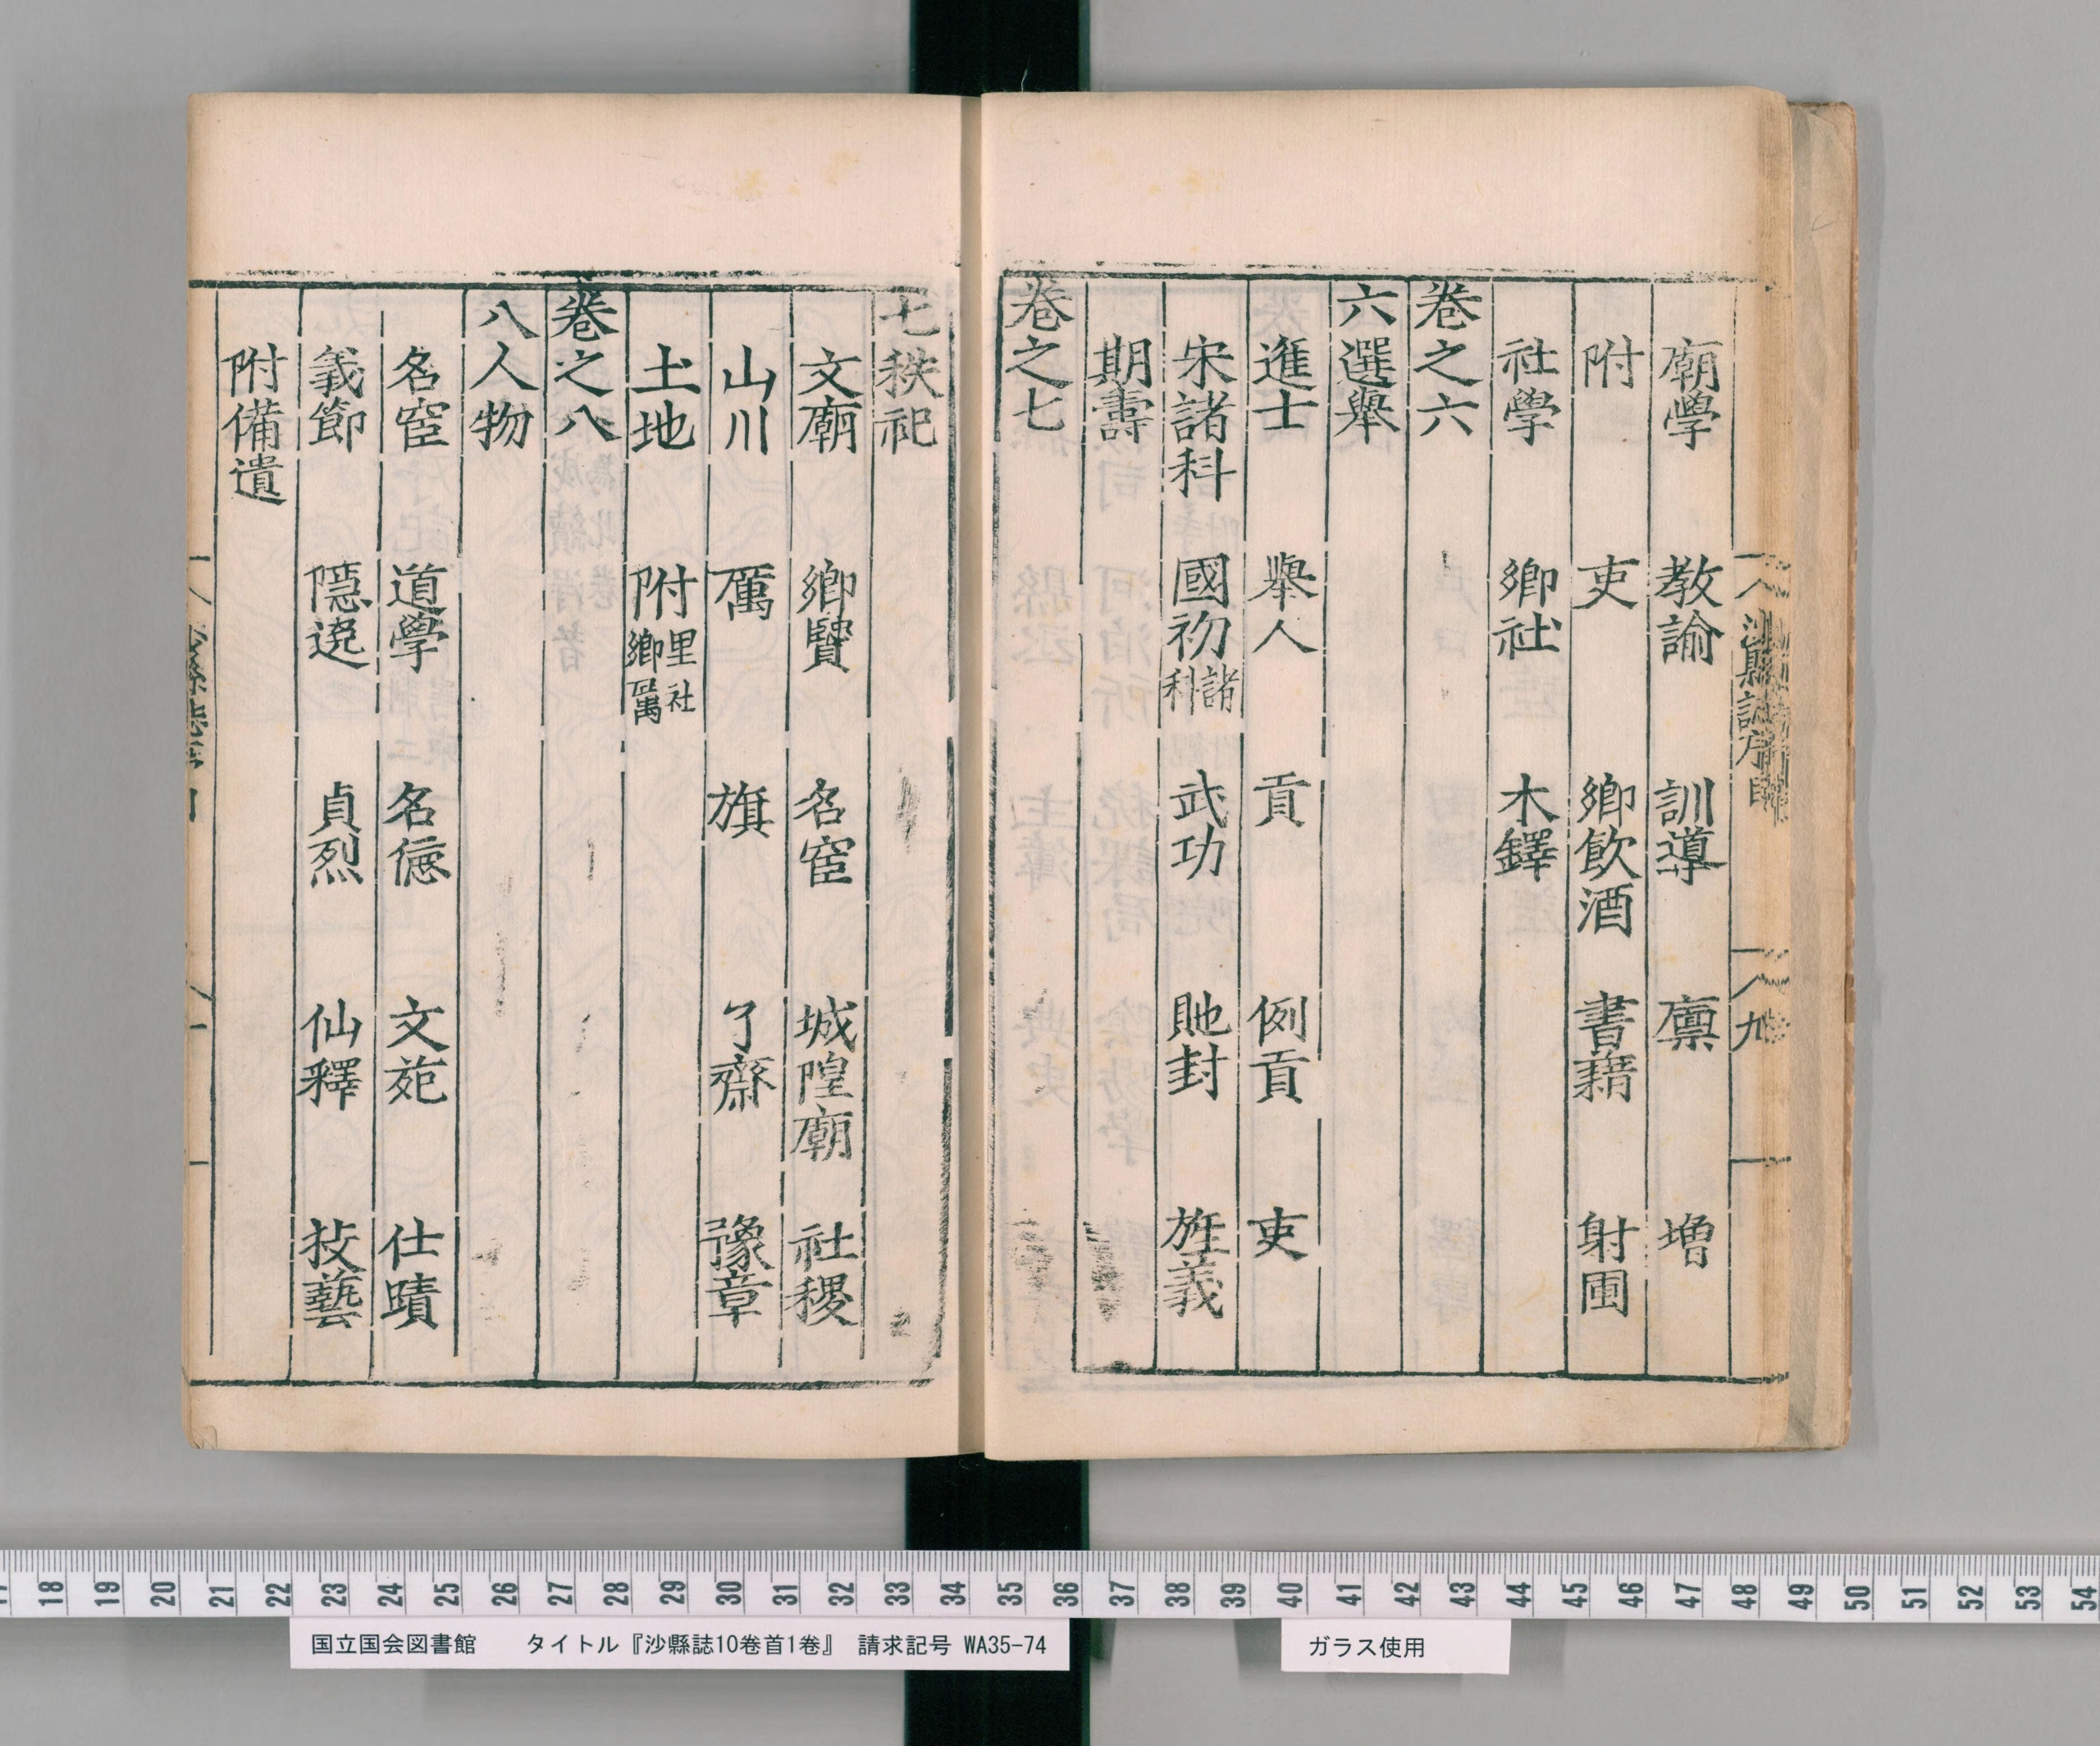 廟學 教諭 訓導 廪 增
附 吏 鄉飲酒 書籍 射圃
社學 鄉社 木鐸
卷之六
六選舉
進士 舉人 貢 例貢 吏
宋諸科 國初諸科 武功 貤封 旌義
期壽
卷之七
七秩祀
文廟 鄉賢 名宦 城隍廟 社稷
山川 厲 旗 了齋 豫章
土地 附里社鄉厲
卷之八
八人物
名宦 道學 名德 文苑 仕蹟
義節 隱逸 貞烈 仙釋 技藝
附備遺
17 18 19 20 21 22 23 24 25 26 27 28 29 30 31 32 33 34 35 36 37 38 39 40 41 42 43 44 45 46 47 48 49 50 51 52 53 54
国立国会図書館 タイトル『沙縣誌10巻首1巻』 請求記号 WA35-74
ガラス使用